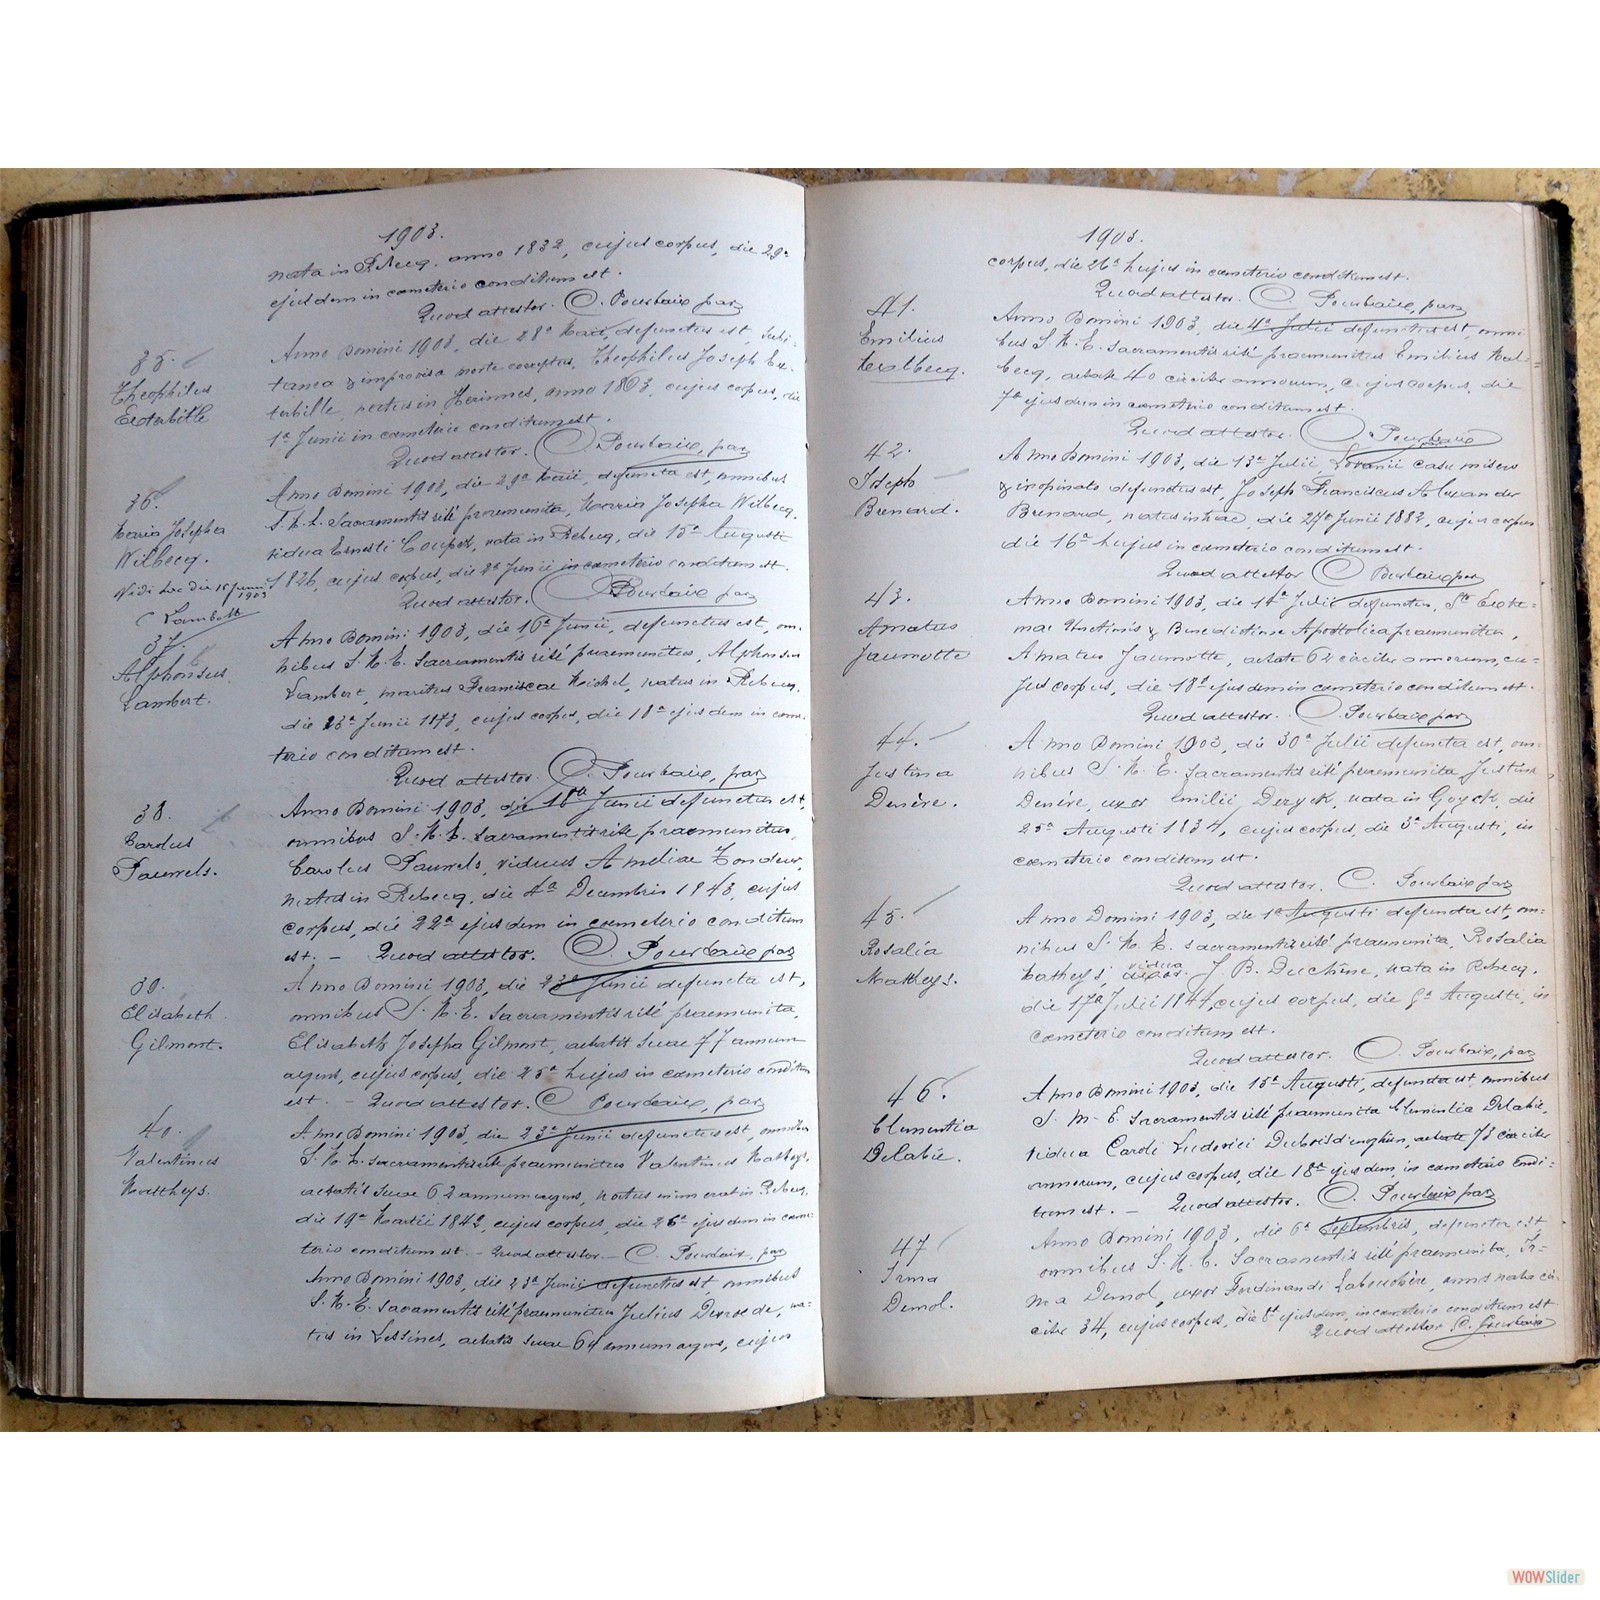 1903.
nata in Rebecq, anno 1832, cujus corpus, die 29a
ejusdem in cœmeterio conditum est.
Quod attestor. C. Pourbaix, par
35.
Theophilus
Exterbille
Anno Domini 1903, die 28a Maii, defunctus est, subi-
tanea & improvisa morte correptus, Theophilus Joseph Ex-
terbille, natus in Herinnes, anno 1863, cujus corpus, die
1a Junii in cœmeterio conditum est.
Quod attestor. C. Pourbaix, par
36.
Maria Josepha
Wilbecq.
Vidi hoc die 15 Junii
1903
Anno Domini 1903, die 29a Maii, defuncta est, omnibus
S. M. E. Sacramentis ritè praemunita, Maria Josepha Wilbecq,
vidua Ernesti Coupez, nata in Rebecq, die 15a Augusti
1826, cujus corpus, die 2a Junii in cœmeterio conditum est.
Quod attestor. C. Pourbaix par
37.
Alphonsus
Lambert.
Anno Domini 1903, die 16a Junii, defunctus est, om-
nibus S. M. E. Sacramentis ritè praemunitus, Alphonsus
Lambert, maritus Franciscae Michel, natus in Rebecq,
die 23a Junii 1873, cujus corpus, die 18a ejusdem in cœme-
terio conditum est.
Quod attestor. C. Pourbaix, par
38.
Carolus
Pauwels.
Anno Domini 1903, die 18a Junii defunctus est,
omnibus S. M. E. Sacramentis ritè praemunitus,
Carolus Pauwels, viduus Ameliae Tondeur,
natus in Rebecq, die 4a Decembris 1843, cujus
corpus, die 22a ejusdem in cœmeterio conditum
est. - Quod attestor. C. Pourbaix par
39.
Elisabeth
Gilmont.
Anno Domini 1903, die 23a Junii defuncta est,
omnibus S. M. E. Sacramentis ritè praemunita,
Elisabeth Josepha Gilmont, aetatis suae 77 annum
agens, cujus corpus, die 25a hujus in cœmeterio conditum
est. - Quod attestor. C. Pourbaix, par
40.
Valentinus
Mattheys.
Anno Domini 1903, die 23a Junii defunctus est, omnibus
S. M. E. Sacramentis ritè praemunitus Valentinus Matheys,
aetatis suae 62 annum agens, natus enim erat in Rebecq,
die 19a Martii 1842, cujus corpus, die 26a ejusdem in cœme-
terio conditum est. - Quod attestor. - C. Pourbaix, par
Anno Domini 1903, die 23a Junii defunctus est, omnibus
S. M. E. Sacramentis ritè praemunitus Julius Devroede, na-
tus in Lessines, aetatis suae 64 annum agens, cujus
1903.
corpus, die 26a hujus in cœmeterio conditum est.
Quod attestor. C. Pourbaix, par
41.
Emilius
Malbecq.
Anno Domini 1903, die 4a Julii defunctus est, omni
bus S. M. E. Sacramentis ritè praemunitus Emilius Mal-
becq, aetate 40 circiter annorum, cujus corpus, die
7a ejusdem in cœmeterio conditum est.
Quod attestor. C. Pourbaix
par
42.
Joseph
Brenard.
Anno Domini 1903, die 13a Julii, Lovanii casu misero
& inopinato defunctus est, Joseph Franciscus Alexander
Brenard, natus in hac, die 24a Junii 1882, cujus corpus
die 16a hujus in cœmeterio conditum est.
Quod attestor C. Pourbaix par
43.
Amatus
Jaumotte
Anno Domini 1903, die 14a Julii defunctus, Sto Extre-
mae Unctionis & Benedictione Apostolica praemunitus,
Amatus Jaumotte, aetate 62 circiter annorum, cu-
jus corpus, die 18a ejusdem in cœmeterio conditum est.
Quod attestor. C. Pourbaix par
44.
Justina
Denère.
Anno Domini 1903, die 30a Julii defuncta est, om-
nibus S. M. E. Sacramentis ritè praemunita Justina
Denère, uxor Emilii Deryck, nata in Goyck, die
25a Augusti 1834, cujus corpus, die 3a Augusti, in
cœmeterio conditum est.
Quod attestor. C. Pourbaix par
45.
Rosalia
Mattheys.
Anno Domini 1903, die 1a Augusti defuncta est, om-
nibus S. M. E. Sacramentis ritè praemunita, Rosalia
vidua
Matheys, uxor J. B. Duchêne, nata in Rebecq,
die 17a Julii 1847, cujus corpus, die 5a Augusti, in
cœmeterio conditum est.
Quod attestor. C. Pourbaix, par
46.
Clementia
Delabie.
Anno Domini 1903, die 15a Augusti, defuncta est, omnibus
S. M. E. Sacramentis ritè praemunita Clementia Delabie,
vidua Caroli Ludovici Dubois d'enghien, aetate 73 circiter
annorum, cujus corpus, die 18a ejusdem, in cœmeterio condi-
tum est. - Quod attestor. C. Pourbaix par
47
Irma
Demol.
Anno Domini 1903, die 6a Septembris, defuncta est,
omnibus S. M. E. Sacramentis ritè praemunita, Ir-
ma Demol, uxor Ferdinandi Labouchère, annos nata cir
citer 34, cujus corpus, die 8a ejusdem, in cœmeterio conditum est
Quod attestor C. Pourbaix
WOWSlider